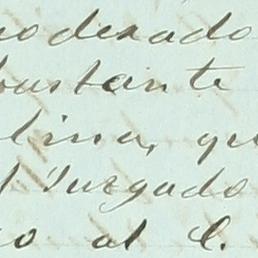 oderado
bustante
lina, qu
l Juzgado
o al C.